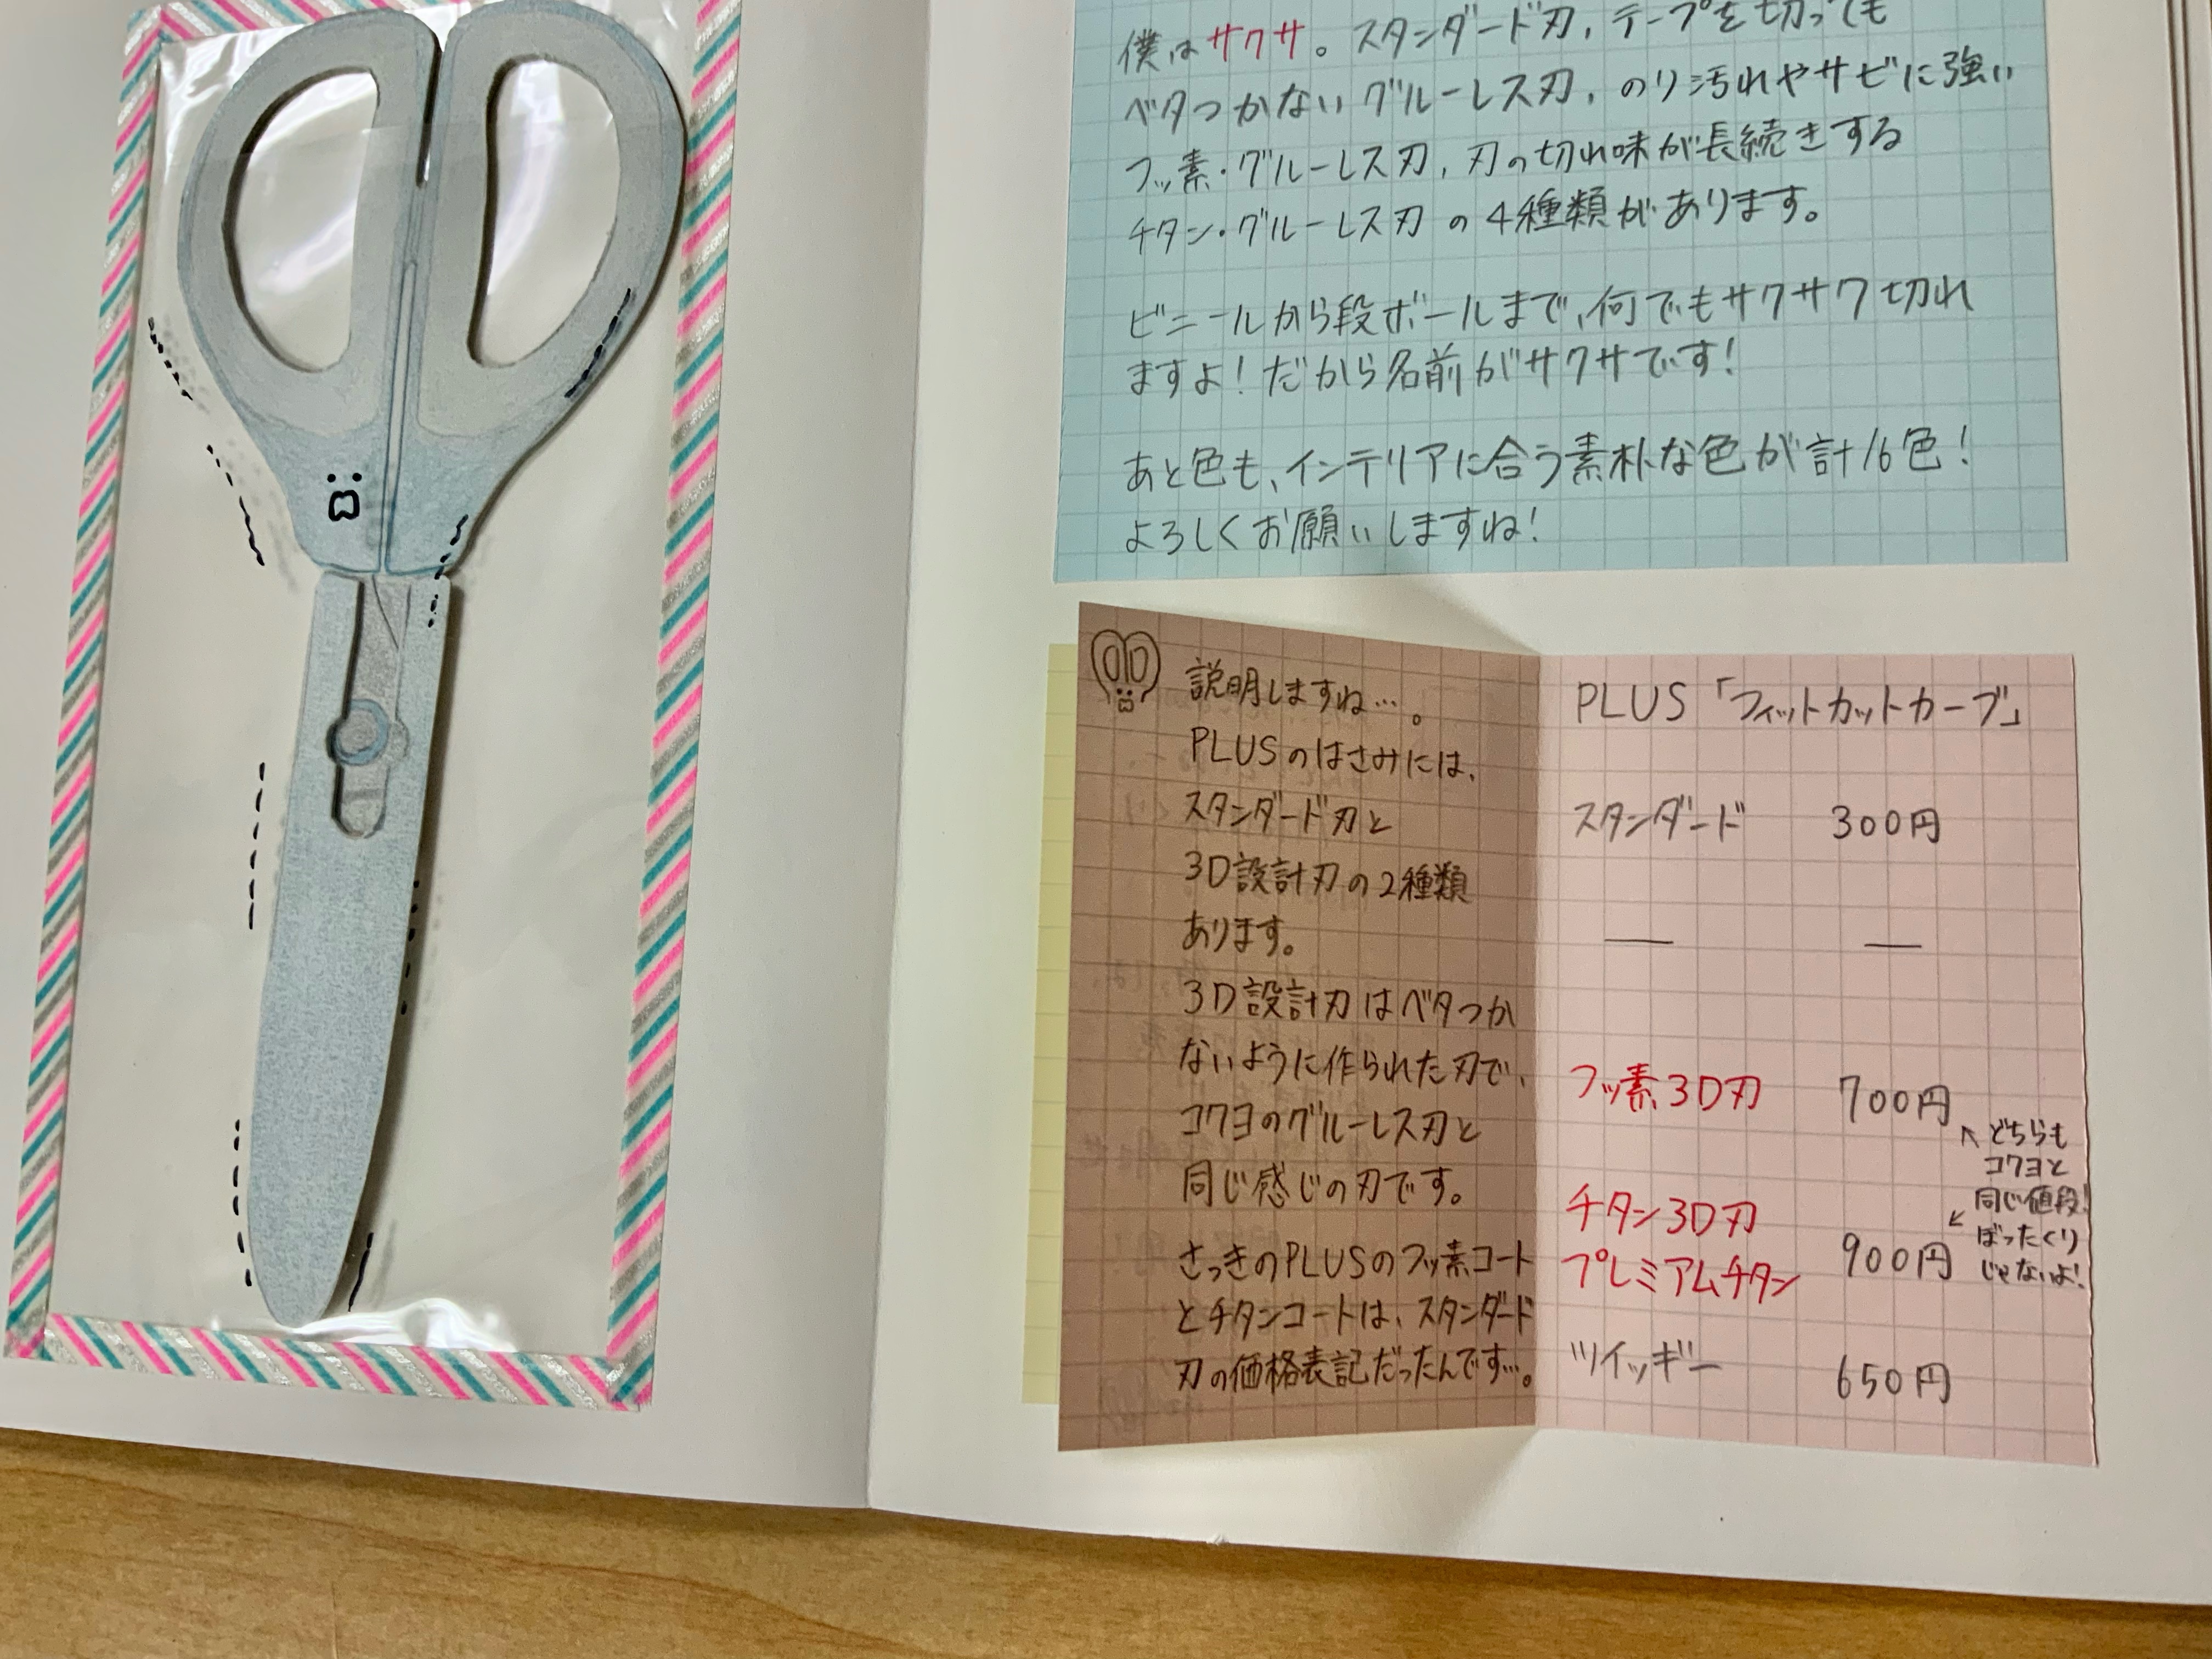 僕はサクサ。スタンダード刃,テープを切っても
ベタつかないグルーレス刃,のり汚れやサビに強い
フッ素・グルーレス刃,刃の切れ味が長続きする
チタン・グルーレス刃の4種類があります。
ビニールから段ボールまで、何でもサクサク切れ
ますよ!だから名前がサクサです!
あと色も、インテリアに合う素朴な色が計16色!
よろしくお願いしますね!
説明しますね…。
PLUSのはさみには、
スタンダード刃と
3D設計刃の2種類
あります。
3D設計刃はベタつか
ないように作られた刃で、
コクヨのグルーレス刃と
同じ感じの刃です。
さっきのPLUSのフッ素コート
とチタンコートは、スタンダード
刃の価格表記だったんです…。
PLUS「フィットカットカーブ」
スタンダード 300円
— —
フッ素3D刃 700円
チタン3D刃
プレミアムチタン 900円
ツイッギー 650円
どちらも
コクヨと
同じ値段!
ぼったくり
じゃないよ!